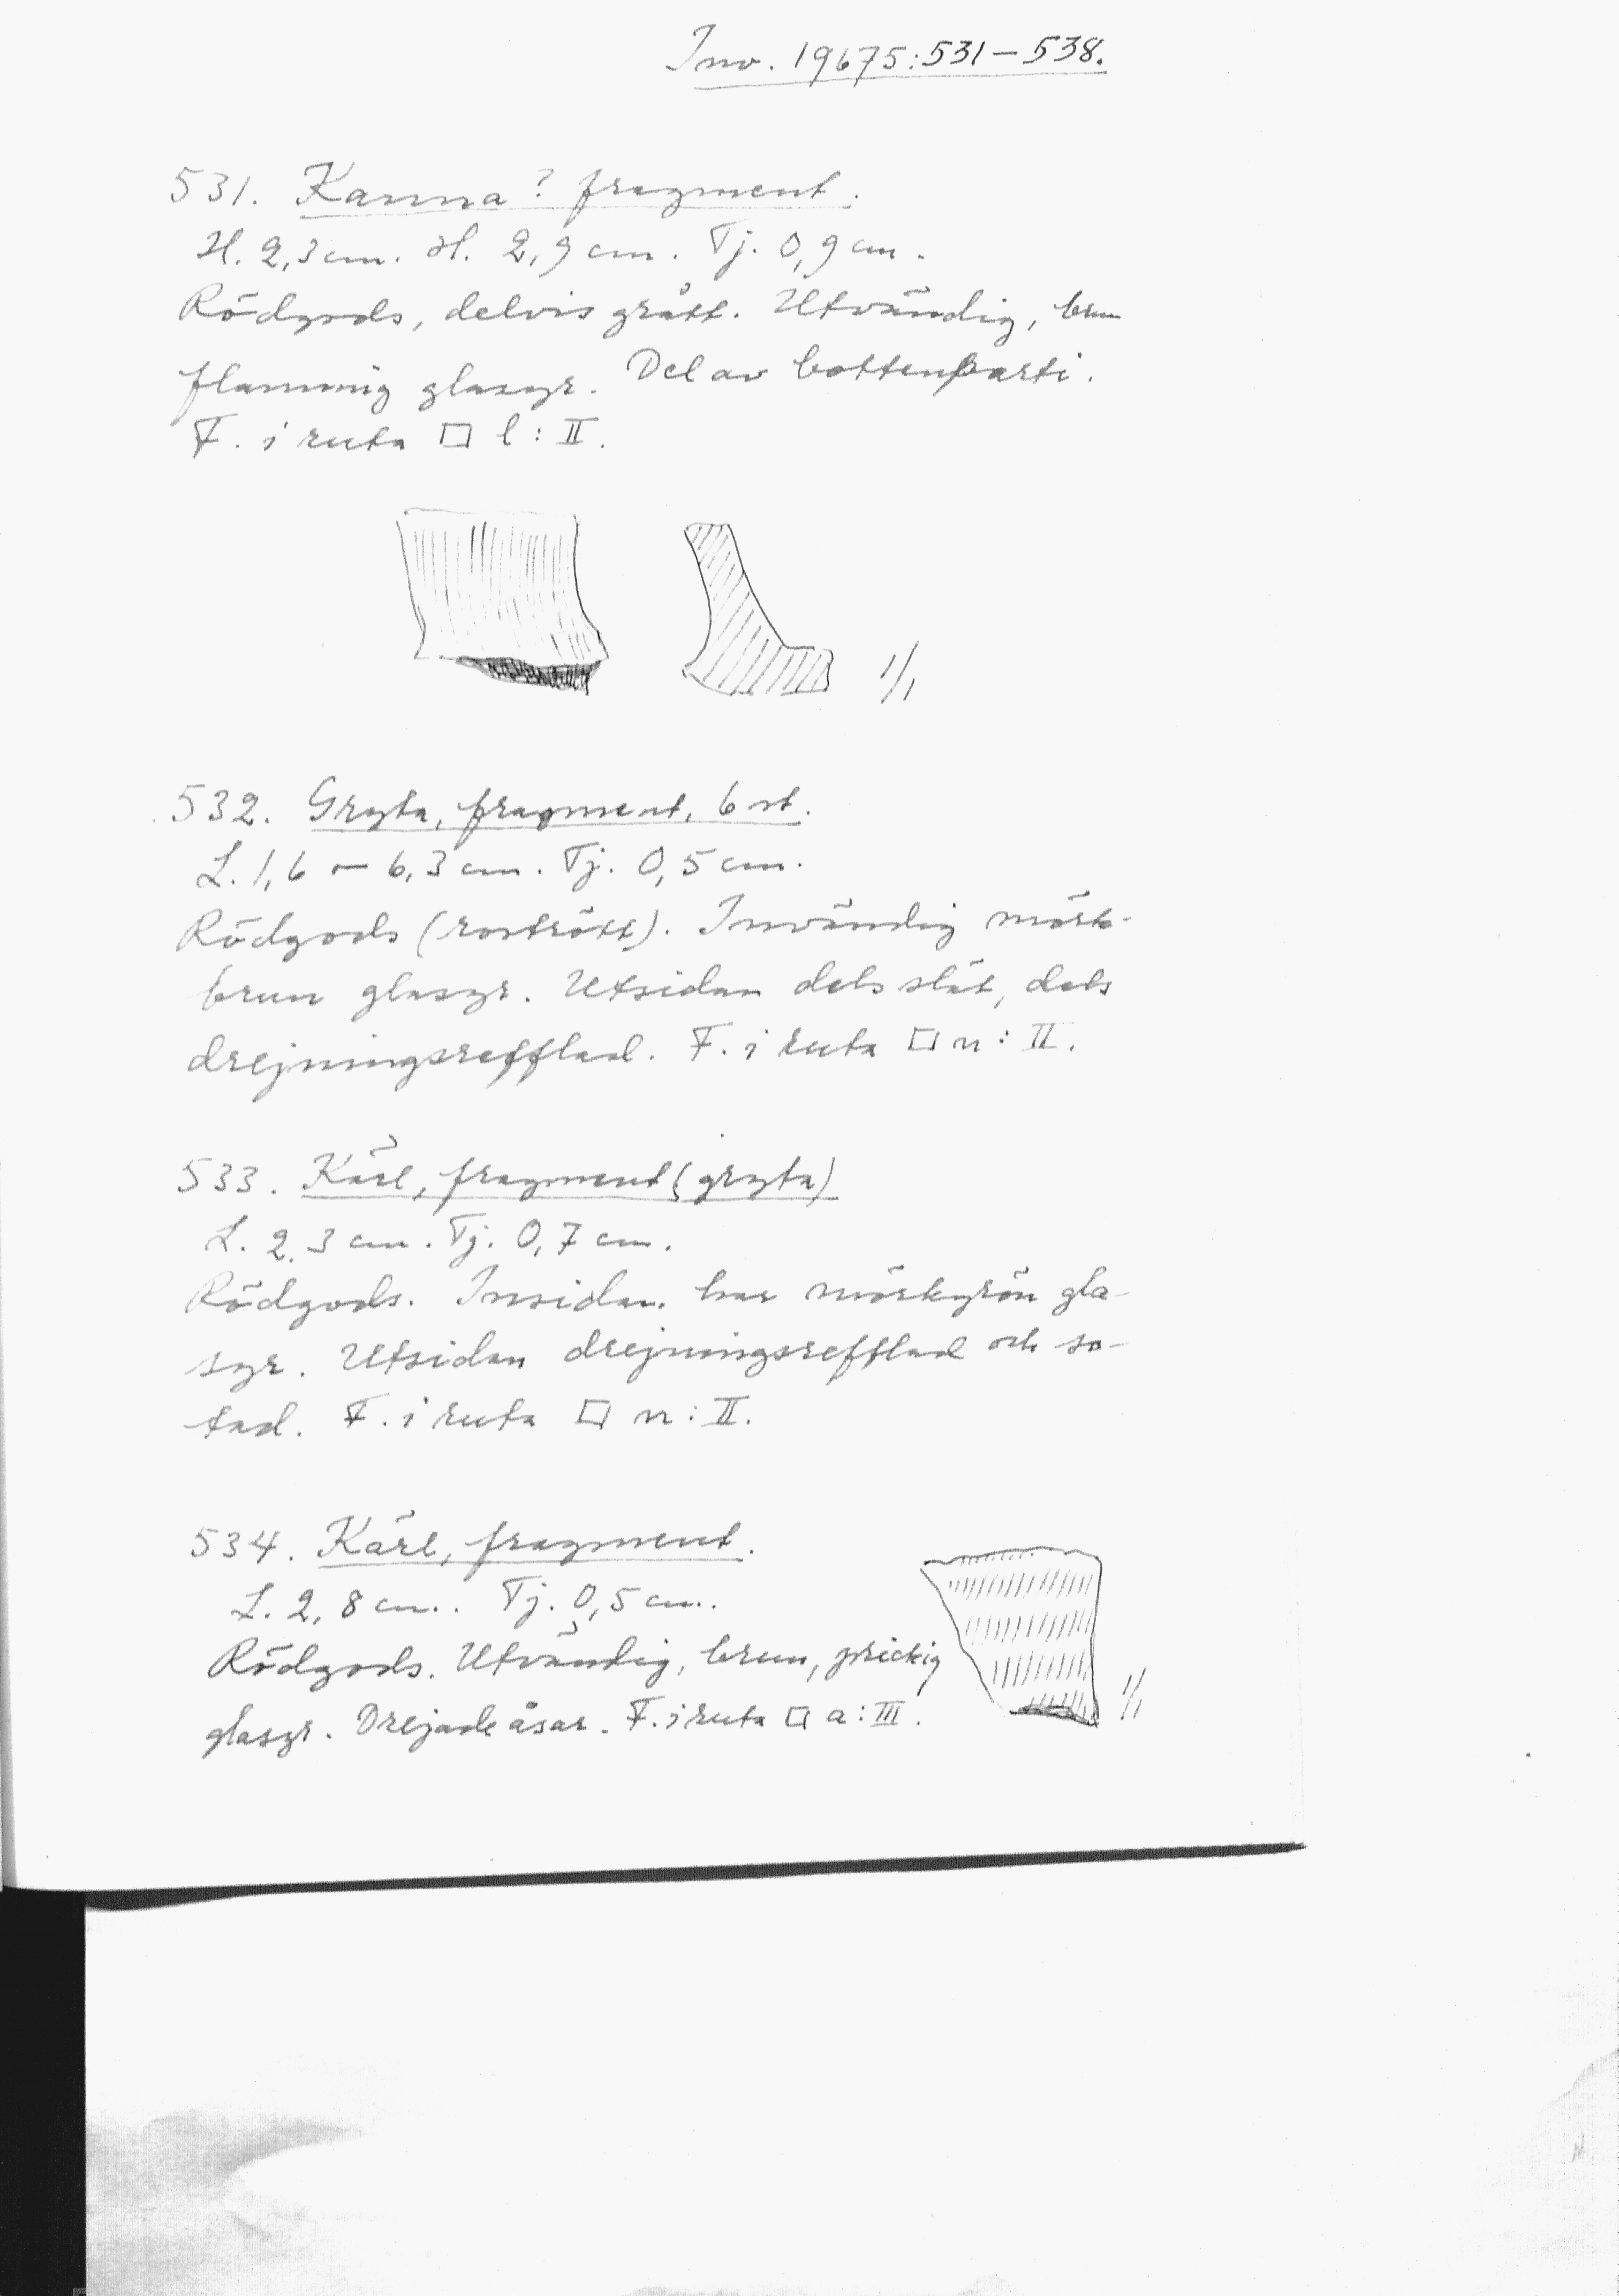 Inv. 19675:531–538.
531. Kanna? fragment.
H. 2,3 cm. H. 2,9 cm. Tj. 0,9 cm.
Rödgods, delvis grått. Utvändig, brun
flammig glasyr. Del av bottenparti.
F. i ruta □ l:II.
1/1
532. Gryta, fragment, 6 st.
L. 1,6 – 6,3 cm. Tj. 0,5 cm.
Rödgods (rostrött). Invändig mörk-
brun glasyr. Utsidan dels slät, dels
drejningsrefflad. F. i ruta □ n:II.
533. Kärl, fragment (gryta)
L. 2,3 cm. Tj. 0,7 cm.
Rödgods. Insidan har mörkgrön gla-
syr. Utsidan drejningsrefflad och so-
tad. F. i ruta □ n:II.
534. Kärl, fragment.
L. 2,8 cm. Tj. 0,5 cm.
Rödgods. Utvändig, brun, prickig
glasyr. Drejade åsar. F. i ruta □ a:III.
1/1